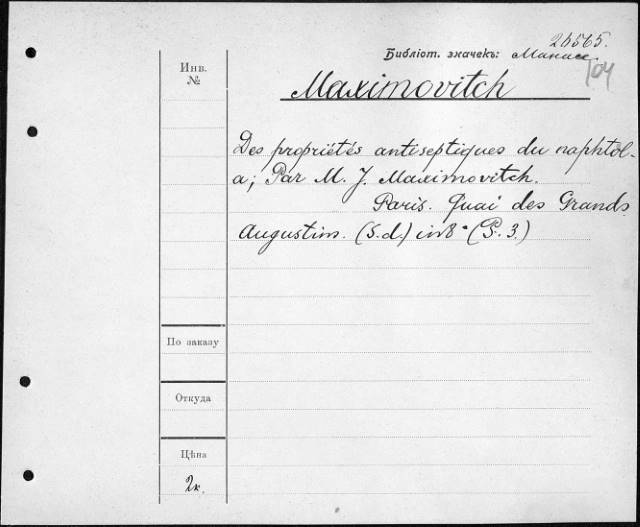 26565.
Библіот. значекъ: Манасс
104
Инв.
№
Maximovitch
Des propriétés antiseptiques du naphtol-
a; Par M. J. Maximovitch.
Paris. Quai des Grands
Augustins. (S.d.) in 8° (P. 3.)
По заказу
Откуда
Цѣна
2к.